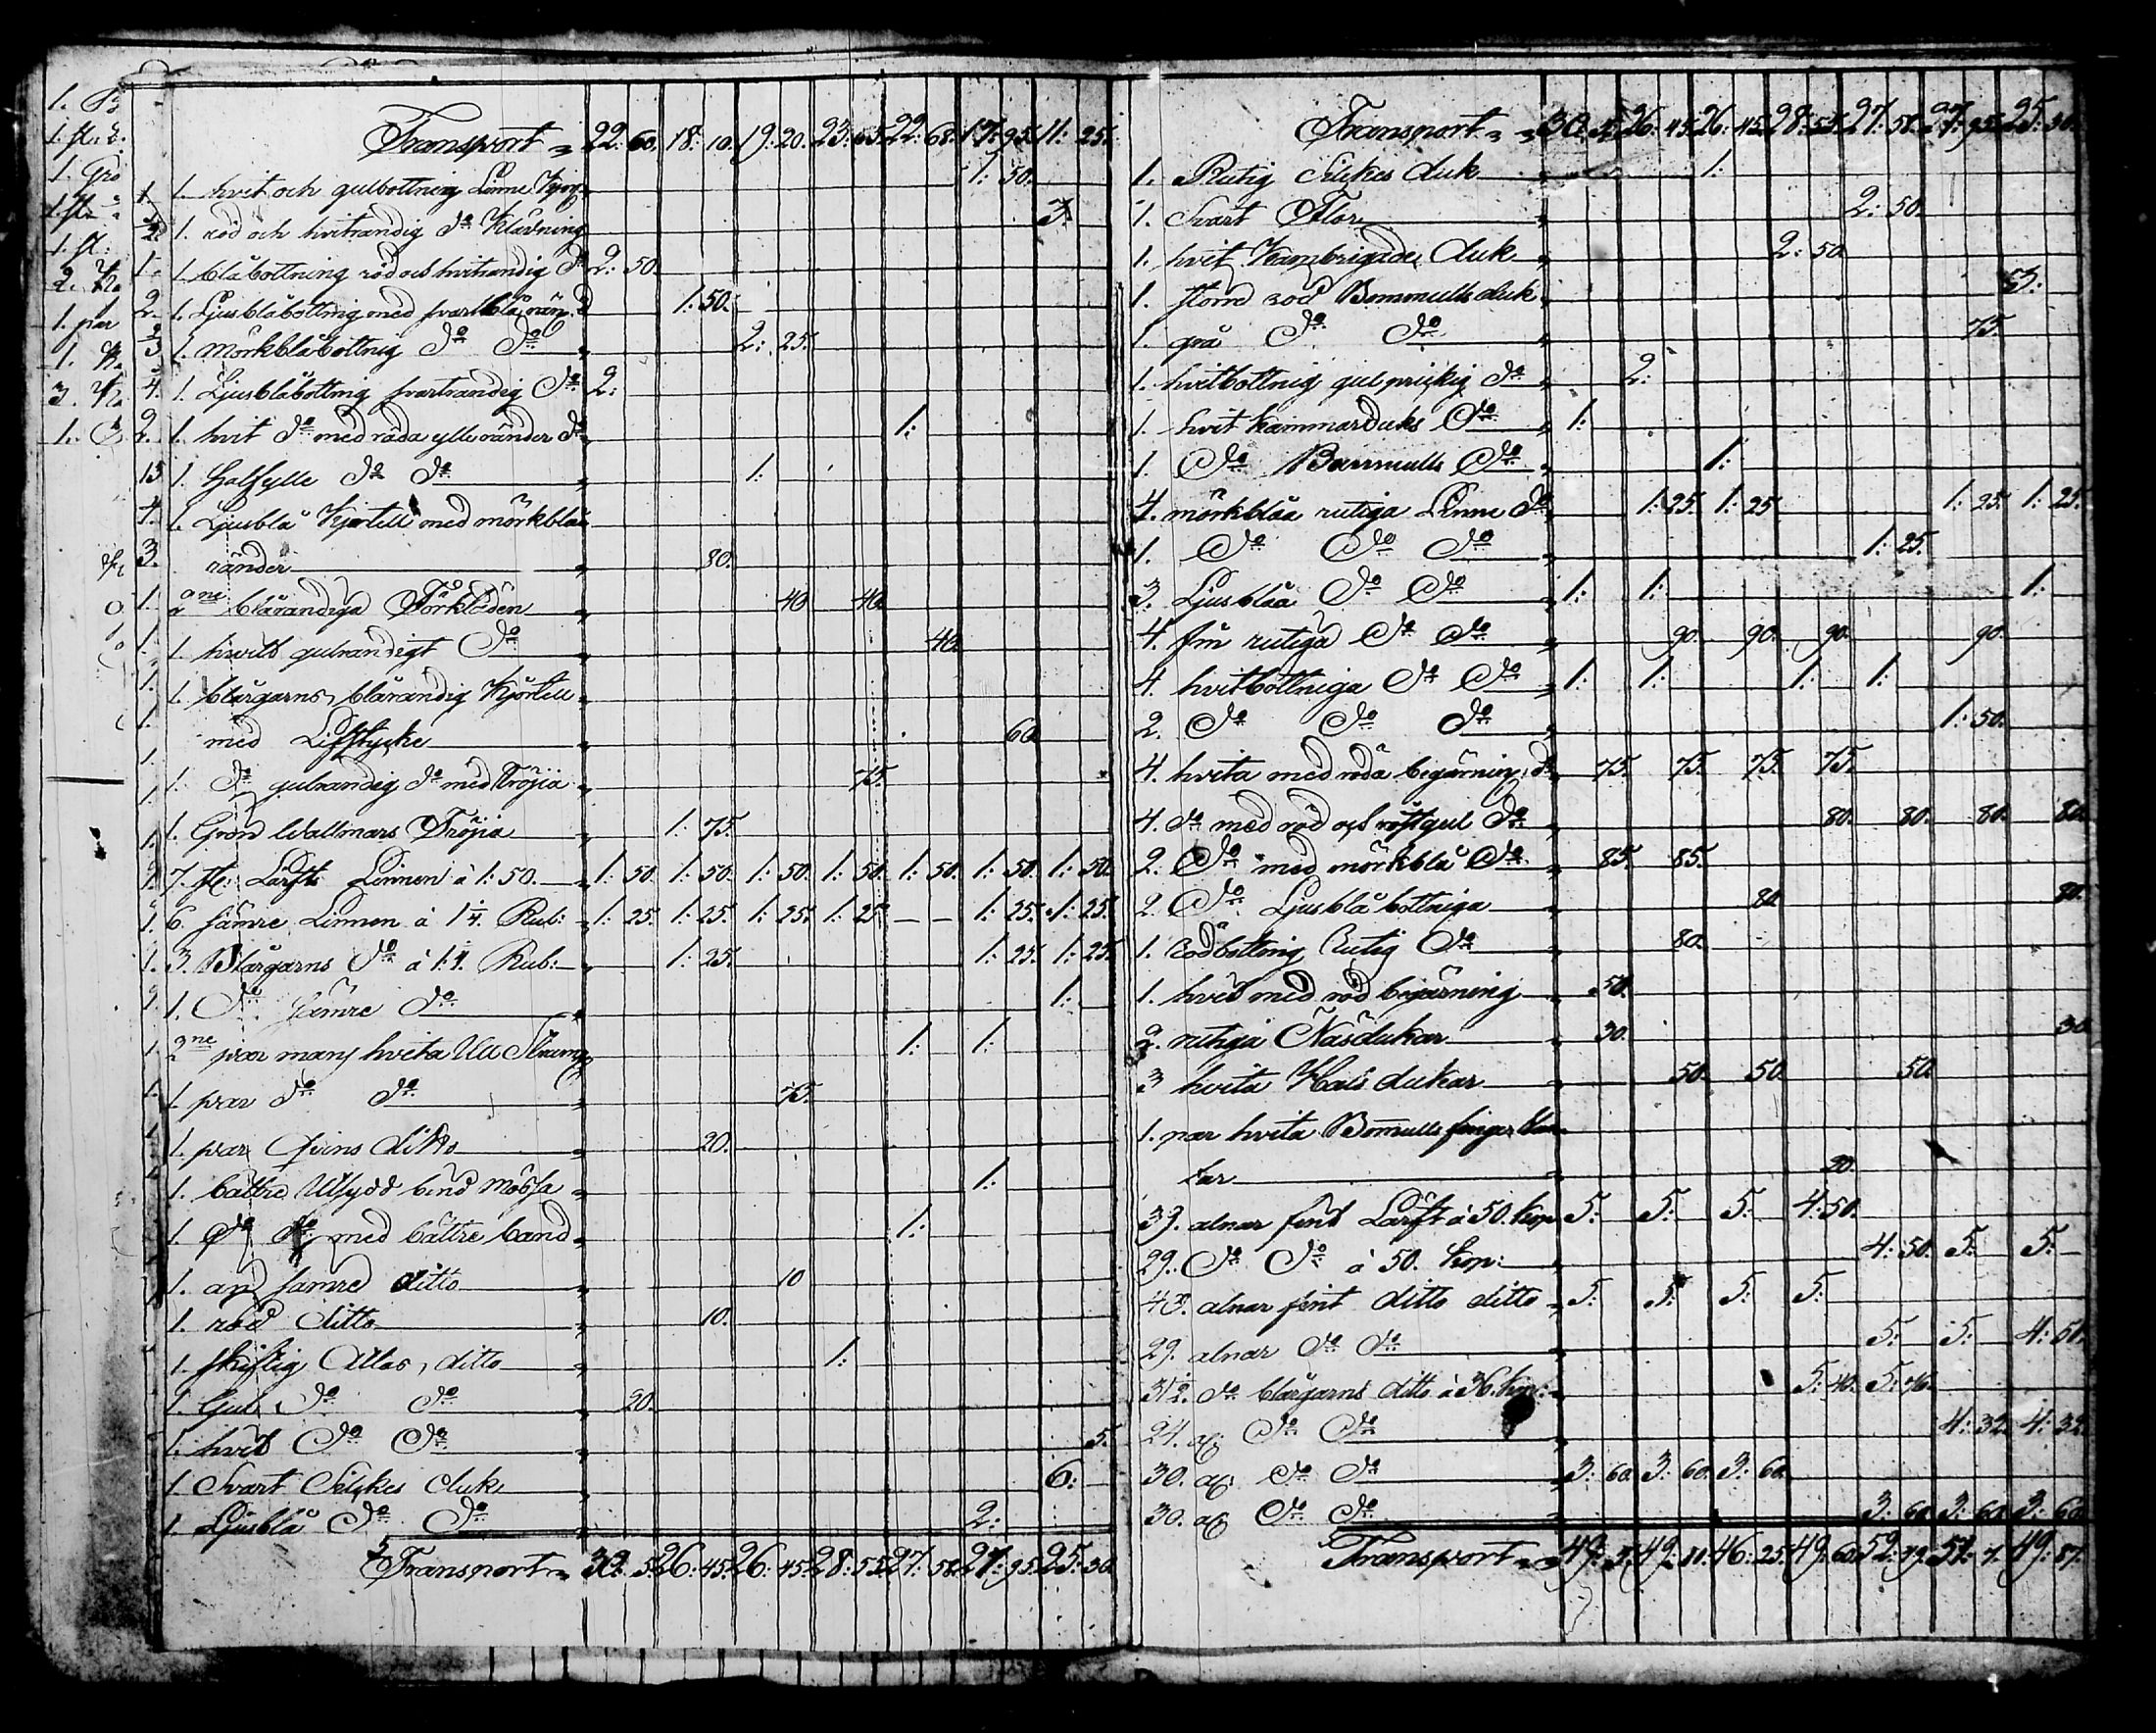 Transport 22: 60. 18: 10. 19: 20. 23: 65. 22: 68. 17: 95. 11: 25.
1. hvit och gulbottning Linne Kjog 1: 50.
1. röd och hvitrandig do Klädning 3.
1. blåbottning röd och hvitrandig do 2: 50.
1. Ljusblåbottnig med svartblå rän. do 1: 50.
1. Mörkblåbottnig do do 2: 25.
1. Ljusblåbottnig svartrandig do 2:
1. hvit do med röda ylle ränder do 1:
1. Halfylle do do 1:
1. Ljusblå Kjortell med mörkblåa
ränder 80.
2ne blårandiga Förkläden 40. 40.
1. hvitt gulrandigt do 40.
1. blårgarns blårandig Kjortell
med Lifstycke 60.
1. do gulrandig do med Tröjia 75.
1. Grön Wallmars Tröjia 1: 75.
7. st: Lärfts Linnen á 1: 50. 1: 50. 1: 50. 1: 50. 1: 50. 1: 50. 1: 50. 1: 50.
6. sämre Linnen á 1 1/4. Rub: 1: 25. 1: 25. 1: 25. 1: 25. — — 1: 25. 1: 25.
3. Blårgarns do á 1 1/4. Rub: 1: 25. 1: 25. 1: 25.
1. do sämre do 1:
2ne par mans hvita Ull Strump 1: 1:
1. par do do 75.
1. par Qvins ditto 20.
1. bättre Utsydd bind Mössa 1:
1. do do med bättre band 1:
1. an sämre ditto 10
1. röd ditto 10.
1. skiftig Atlas, ditto 1:
1. Gul do do 20.
1. hvit do do 5.
1. Svart Silkes duk 6:
1. Ljusblå do do 2:
Transport 30: 5. 26: 45. 26: 45. 28: 55. 27: 58. 27: 95. 25: 30.
Transport 30: 5. 26: 45. 26: 45. 28: 55. 27: 58. 27: 95. 25: 30.
1. Rutig Silkes duk 1:
1. Svart Flor 2: 50.
1. hvit Kambrigades duk 2: 50.
1. storrd röd Bommulls duk 3:
1. grå do do 75.
1. hvitbottnig gul prickig do 2:
1. hvit kammarduks do 1:
1. do Bommulls do 1:
4. mörkblåa rutiga Linne do 1: 25. 1: 25 1: 25. 1: 25.
1. do do do 1: 25.
3. Ljusblåa do do 1: 1: 1:
4. fin rutiga do do 90. 90. 90. 90.
4. hvitbottniga do do 1: 1: 1: 1:
2. do do do 1: 50.
4. hvita med röda begärning do 75. 75. 75. 75.
4. do med röd och röstgul do 80. 80. 80. 80.
2. do med mörkblå do 85. 85.
2. do Ljusblå bottniga 80. 80.
1. rödbottnig Rutig do 80.
1. hvit med röd begärning 50.
2. rutiga Näsdukar 30. 30.
3 hvita Hals dukar 50. 50. 50.
1. par hvita Bomulls finger Van
tar 20.
39. alnar fint Lärft á 50. kop 5: 5: 5: 4: 50.
29. do do á 50. kop: 4: 50. 5: 5:
40. alnar fint ditto ditto 5: 5: 5: 5:
29. alnar do do 5: 5: 4: 50.
31 1/2. do blårgarns ditto á 36. kop: 5: 40. 5: 76.
24. al: do do 4: 32. 4: 32.
30. al: do do 3: 60. 3: 60. 3: 60.
30. al: do do 3: 60. 3: 60. 3: 60.
Transport 49: 5. 49: 80. 46: 25. 49: 60. 52: 79. 51: 7. 49: 87.